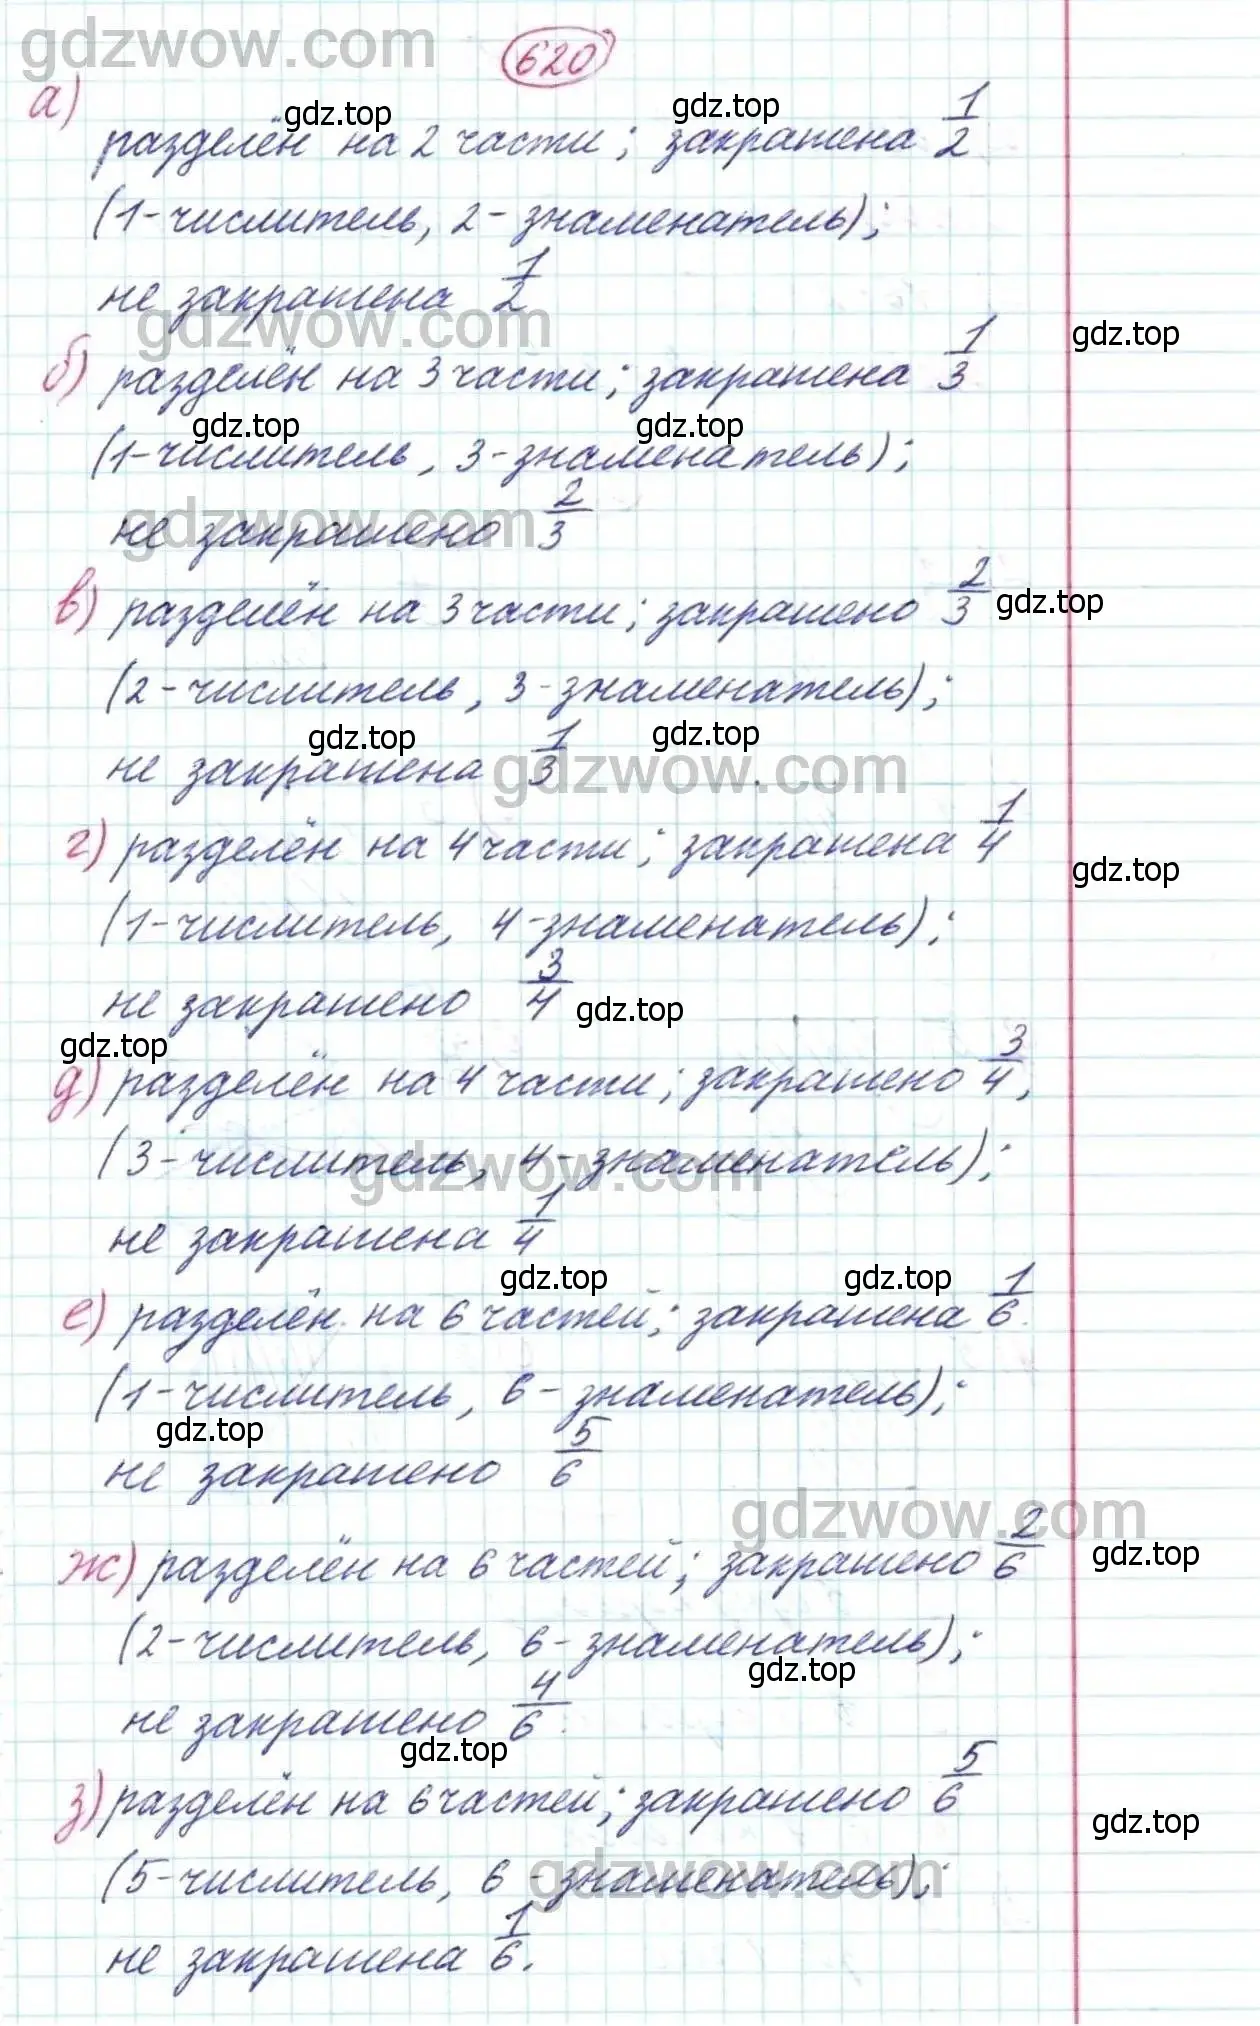 gdzwow.com
620
а)
gdz.top gdz.top
разделён на 2 части; закрашена 1/2
(1-числитель, 2- знаменатель);
не закрашена 1/2
gdzwow.com gdz.top
б) разделён на 3 части; закрашена 1/3
gdz.top gdz.top
(1-числитель, 3-знаменатель);
gdzwow.com
не закрашено 2/3
в) разделён на 3 части; закрашено 2/3
gdz.top
(2-числитель, 3-знаменатель);
gdz.top gdz.top
не закрашена 1/3
gdzwow.com
г) разделён на 4 части; закрашена 1/4
gdz.top
(1-числитель, 4-знаменатель);
не закрашено 3/4
gdz.top
gdz.top
д) разделён на 4 части; закрашено 3/4,
(3-числитель, 4-знаменатель);
gdzwow.com
не закрашена 1/4
gdz.top gdz.top
е) разделён на 6 частей; закрашена 1/6
(1-числитель, 6-знаменатель);
gdz.top
не закрашено 5/6
gdzwow.com
ж) разделён на 6 частей; закрашено 2/6
gdz.top
(2-числитель, 6-знаменатель);
gdz.top
не закрашено 4/6
gdz.top
з) разделён на 6 частей; закрашено 5/6
gdz.top
(5-числитель, 6-знаменатель);
gdzwow.com
не закрашена 1/6.